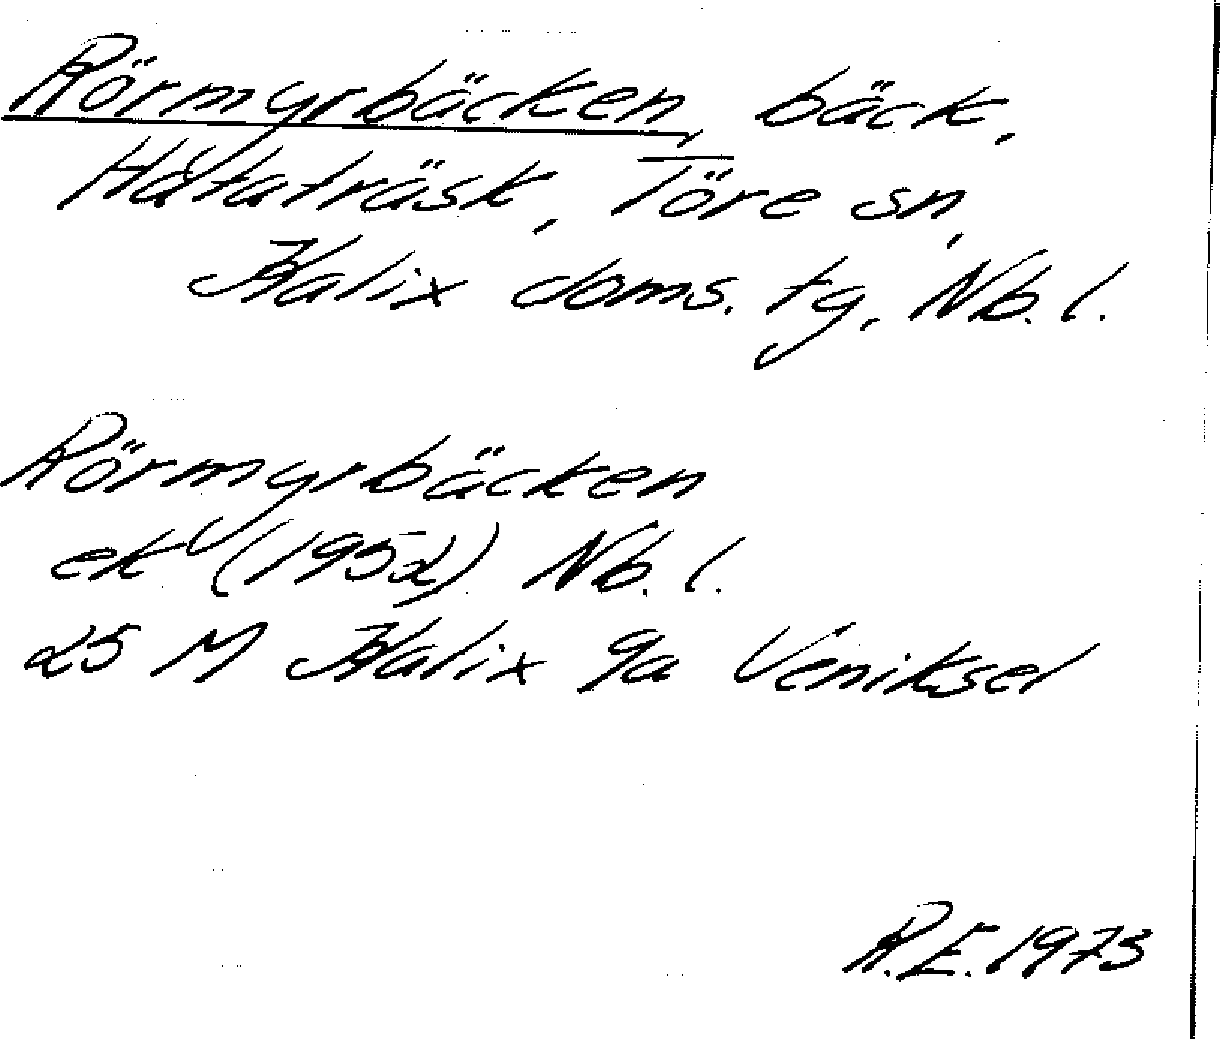 Rörmyrbäcken, bäck,
Hataträsk, Töre sn,
Kalix doms. tg, Nb. l.
Rörmyrbäcken
ek (1952) Nb. l.
25 M Kalix 9a Veniksel
R.E. 1973